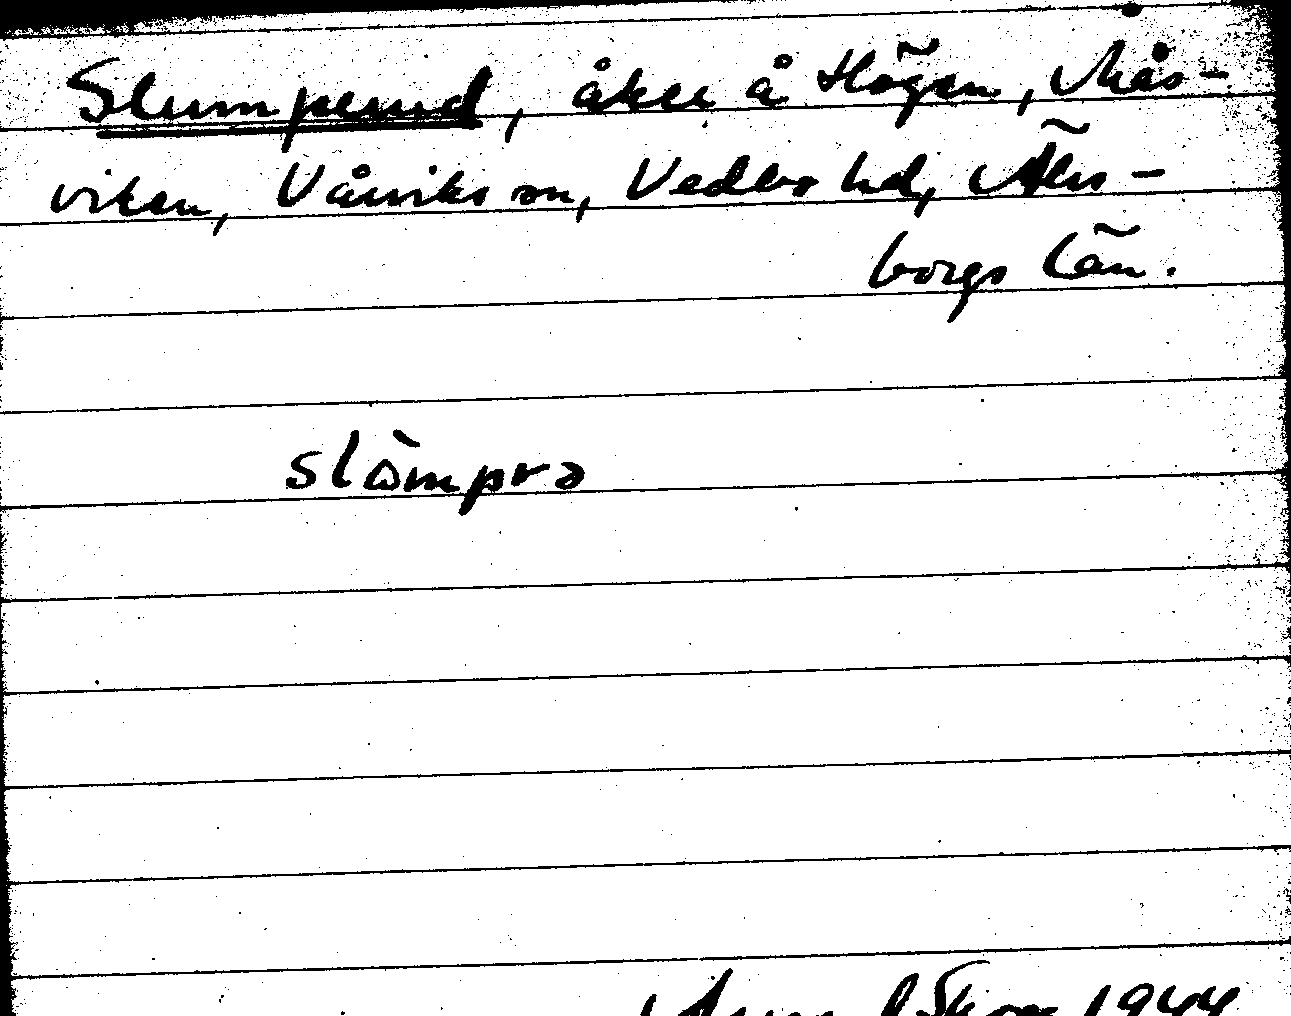 Slumperud, åker å Högen, Mås-
viken, Vårviks sn, Vedbo hd, Älvs-
borgs län.
slòmprə
1944